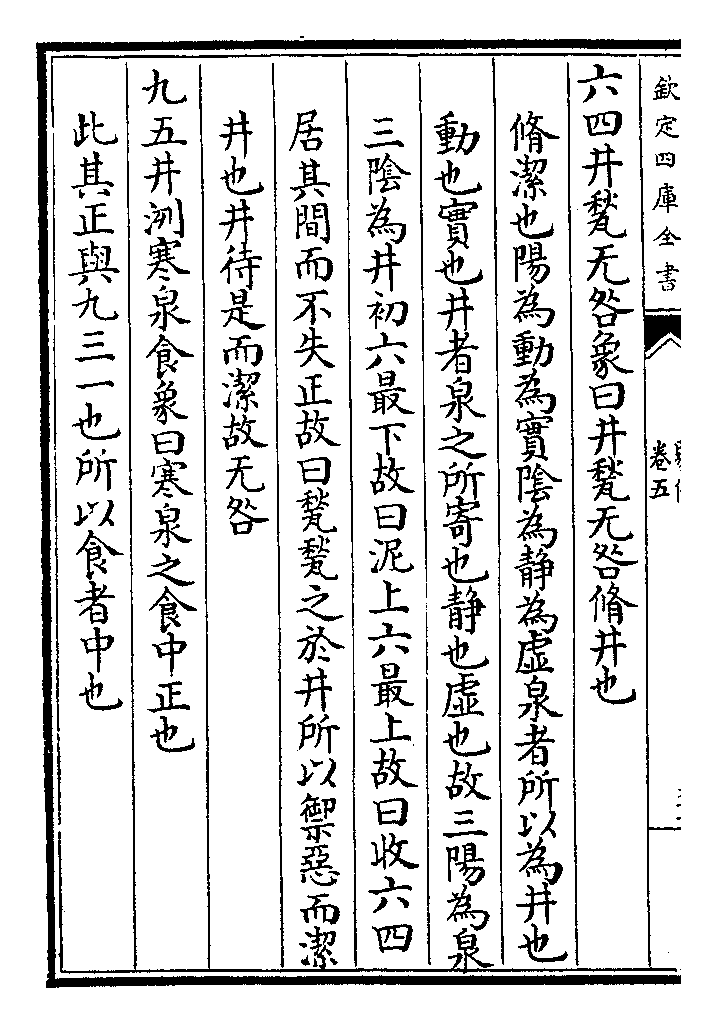 欽定四庫全書
卷五
六四井甃无咎象曰井甃无咎脩井也
脩潔也陽為動為實陰為静為虛泉者所以為井也
動也實也井者泉之所寄也静也虛也故三陽為泉
三陰為井初六最下故曰泥上六最上故曰收六四
居其間而不失正故曰甃甃之於井所以禦惡而潔
井也井待是而潔故无咎
九五井洌寒泉食象曰寒泉之食中正也
此其正與九三一也所以食者中也